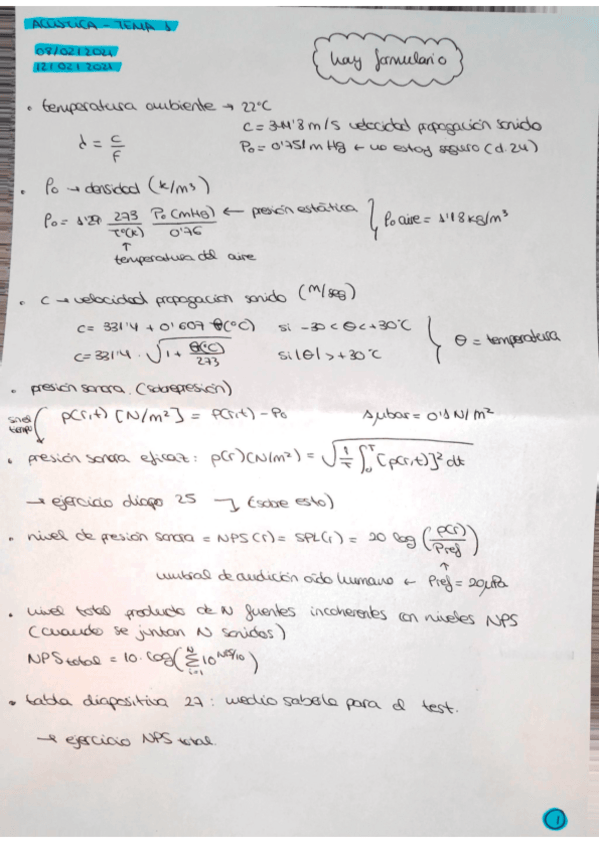 ACÚSTICA - TEMA 1
08/02/2021
12/02/2021
hay formulario
• temperatura ambiente → 22°C
c = 344'8 m/s velocidad propagación sonido
λ = c/F
P₀ = 0'751 mHg ← no estoy seguro (d. 24)
• ρ₀ → densidad (k/m³)
ρ₀ = 1'29 273/T°(k) P₀(mHg)/0'76 ← presión estática } ρ₀ aire = 1'18 kg/m³
↑
temperatura del aire
• c → velocidad propagacion sonido (m/seg)
c = 331'4 + 0'607 θ(°C) si -30 < θ < +30°C
c = 331'4 · √(1 + θ(°C)/273) si |θ| > +30°C } θ = temperatura
• presión sonora. (sobrepresión)
p(r,t) [N/m²] = P(r,t) - P₀ 1 μbar = 0'1 N/m²
• presión sonora eficaz: p(r) (N/m²) = √(1/T ∫₀ᵀ [p(r,t)]² dt
→ ejercicio diapo 25 (sobre esto)
• nivel de presión sonora = NPS(r) = SPL(r) = 20 log (p(r)/Pref)
↑
umbral de audición oído humano ← Pref = 20μPa
• nivel total producto de N fuentes incoherentes con niveles NPS
(cuando se juntan N sonidos)
NPS total = 10 · log(∑ᵢ₌₁ᴺ 10^NPSi/10)
• tabla diapositiva 27: medio saberla para el test.
→ ejercicio NPS total.
1